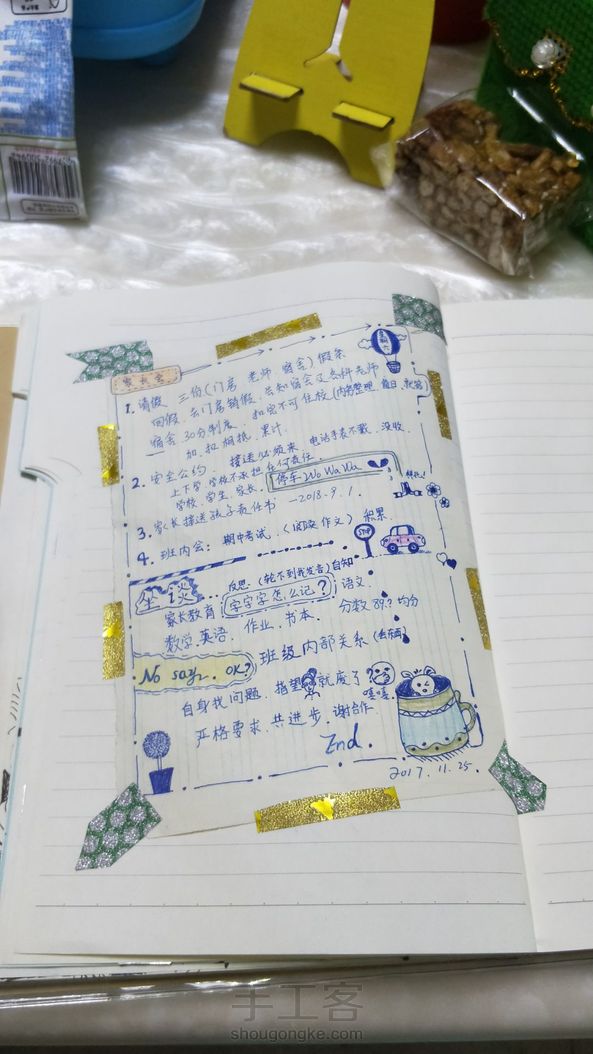 家长会
星期六
1. 请假 三份(门房 老师 宿舍)假条
回假,去门房销假,告知宿舍及各科老师
宿舍30分制度,扣完不可住校(内务整理 值日
加,扣捆抵,累计.
2. 安全公约. 接送必须来 电话手表不戴,没收.
上下学,学校不承担任何责任.
学校,学生,家长. 停车 Wo Wa Wa
3. 家长接送孩子责任书 —2018.9.1.
4. 班内会: 期中考试.(阅读作文) 积累
STOP
坐谈 反思 (轮不到我发言)自知
家长教育 字字字怎么记? 语文.
数学,英语. 作业,书本. 分数89.? 均分
No say. OK? 班级内部关系
自身找问题. 指望 就废了 嘻嘻.
严格要求,共进步,谢合作.
End.
2017.11.25.
手工客
shougongke.com